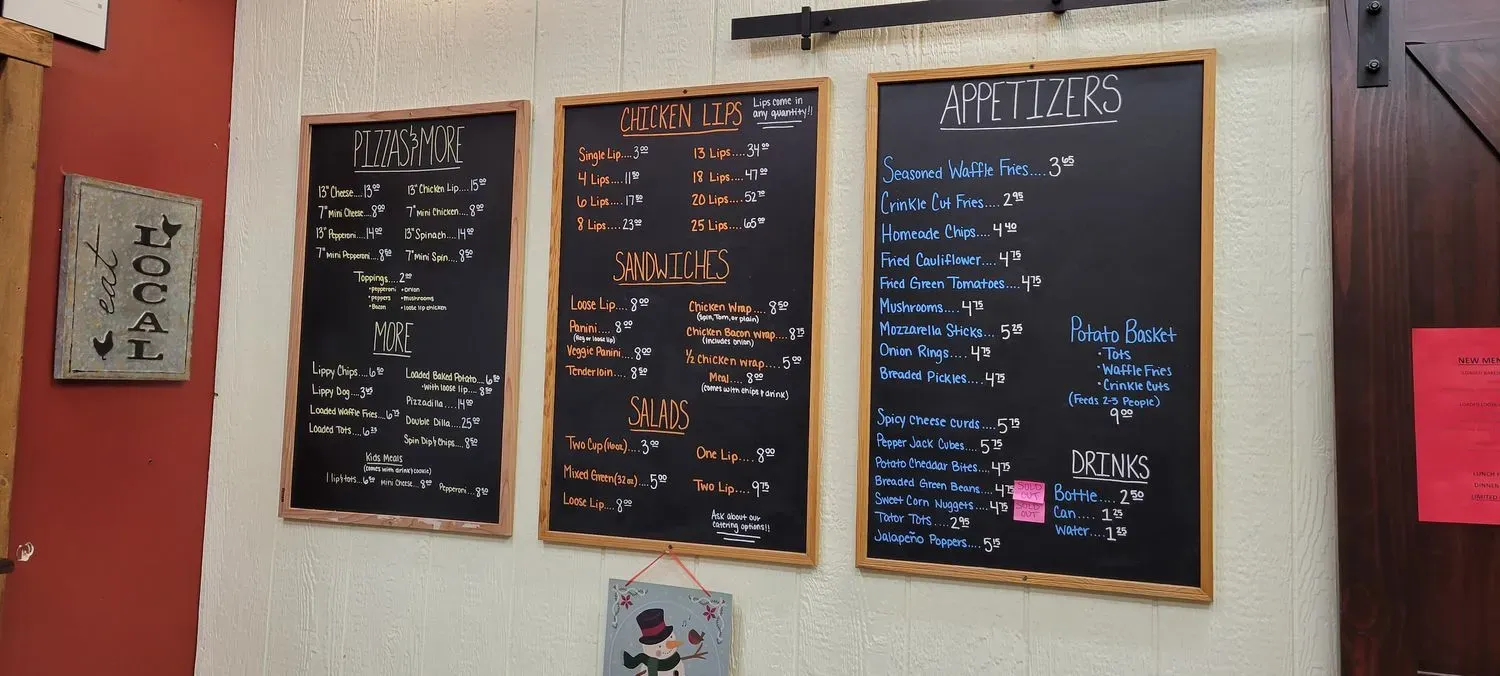 eat
LOCAL
PIZZAS & MORE
13" Cheese....13⁰⁰
7" Mini Cheese....8⁰⁰
13" Pepperoni....14⁰⁰
7" Mini Pepperoni....8⁵⁰
13" Chicken Lip....15⁰⁰
7" Mini Chicken....8⁰⁰
13" Spinach....14⁰⁰
7" Mini Spin....8⁵⁰
Toppings....2⁰⁰
•pepperoni •onion
•peppers •mushrooms
•Bacon •loose lip chicken
MORE
Lippy Chips....6⁵⁰
Lippy Dog....3⁴⁵
Loaded Waffle Fries...6⁷⁵
Loaded Tots....6²⁵
Loaded Baked Potato..6⁵⁰
•with loose lip....8⁵⁰
Pizzadilla....14⁰⁰
Double Dilla....25⁰⁰
Spin Dip & Chips....8⁵⁰
Kids Meals
(comes with drink & cookie)
1 lip & tots...6⁵⁰ Mini Cheese...8⁰⁰ Pepperoni...8⁵⁰
CHICKEN LIPS
Lips come in
any quantity!!
Single Lip....3⁰⁰
4 Lips....11⁵⁰
6 Lips....17⁵⁰
8 Lips....23⁰⁰
13 Lips....34⁰⁰
18 Lips....47⁰⁰
20 Lips....52⁷⁰
25 Lips....65⁰⁰
SANDWICHES
Loose Lip....8⁰⁰
Panini....8⁰⁰
(Reg or loose lip)
Veggie Panini....8⁰⁰
Tenderloin....8⁵⁰
Chicken Wrap....8⁵⁰
(Spin, Tom, or plain)
Chicken Bacon wrap....8⁷⁵
(includes onion)
½ chicken wrap....5⁰⁰
Meal....8⁰⁰
(comes with chips & drink)
SALADS
Two Cup (16oz)....3⁰⁰
Mixed Green (32 oz)....5⁰⁰
Loose Lip....8⁰⁰
One Lip....8⁰⁰
Two Lip....9⁷⁵
Ask about our
catering options!!
APPETIZERS
Seasoned Waffle Fries....3⁶⁵
Crinkle Cut Fries....2⁹⁵
Homeade Chips....4⁴⁰
Fried Cauliflower....4⁷⁵
Fried Green Tomatoes....4⁷⁵
Mushrooms....4⁷⁵
Mozzarella Sticks....5²⁵
Onion Rings....4⁷⁵
Breaded Pickles....4⁷⁵
Spicy cheese curds....5⁷⁵
Pepper Jack Cubes....5⁷⁵
Potato Cheddar Bites....4⁷⁵
Breaded Green Beans....4⁷⁵
SOLD
OUT
Sweet Corn Nuggets....4⁷⁵
SOLD
OUT
Tator Tots....2⁹⁵
Jalapeño Poppers....5¹⁵
Potato Basket
•Tots
•Waffle Fries
•Crinkle Cuts
(Feeds 2-3 People)
9⁰⁰
DRINKS
Bottle....2⁵⁰
Can....1²⁵
Water....1²⁵
NEW MEN
LUNCH
DINNER
LIMITED